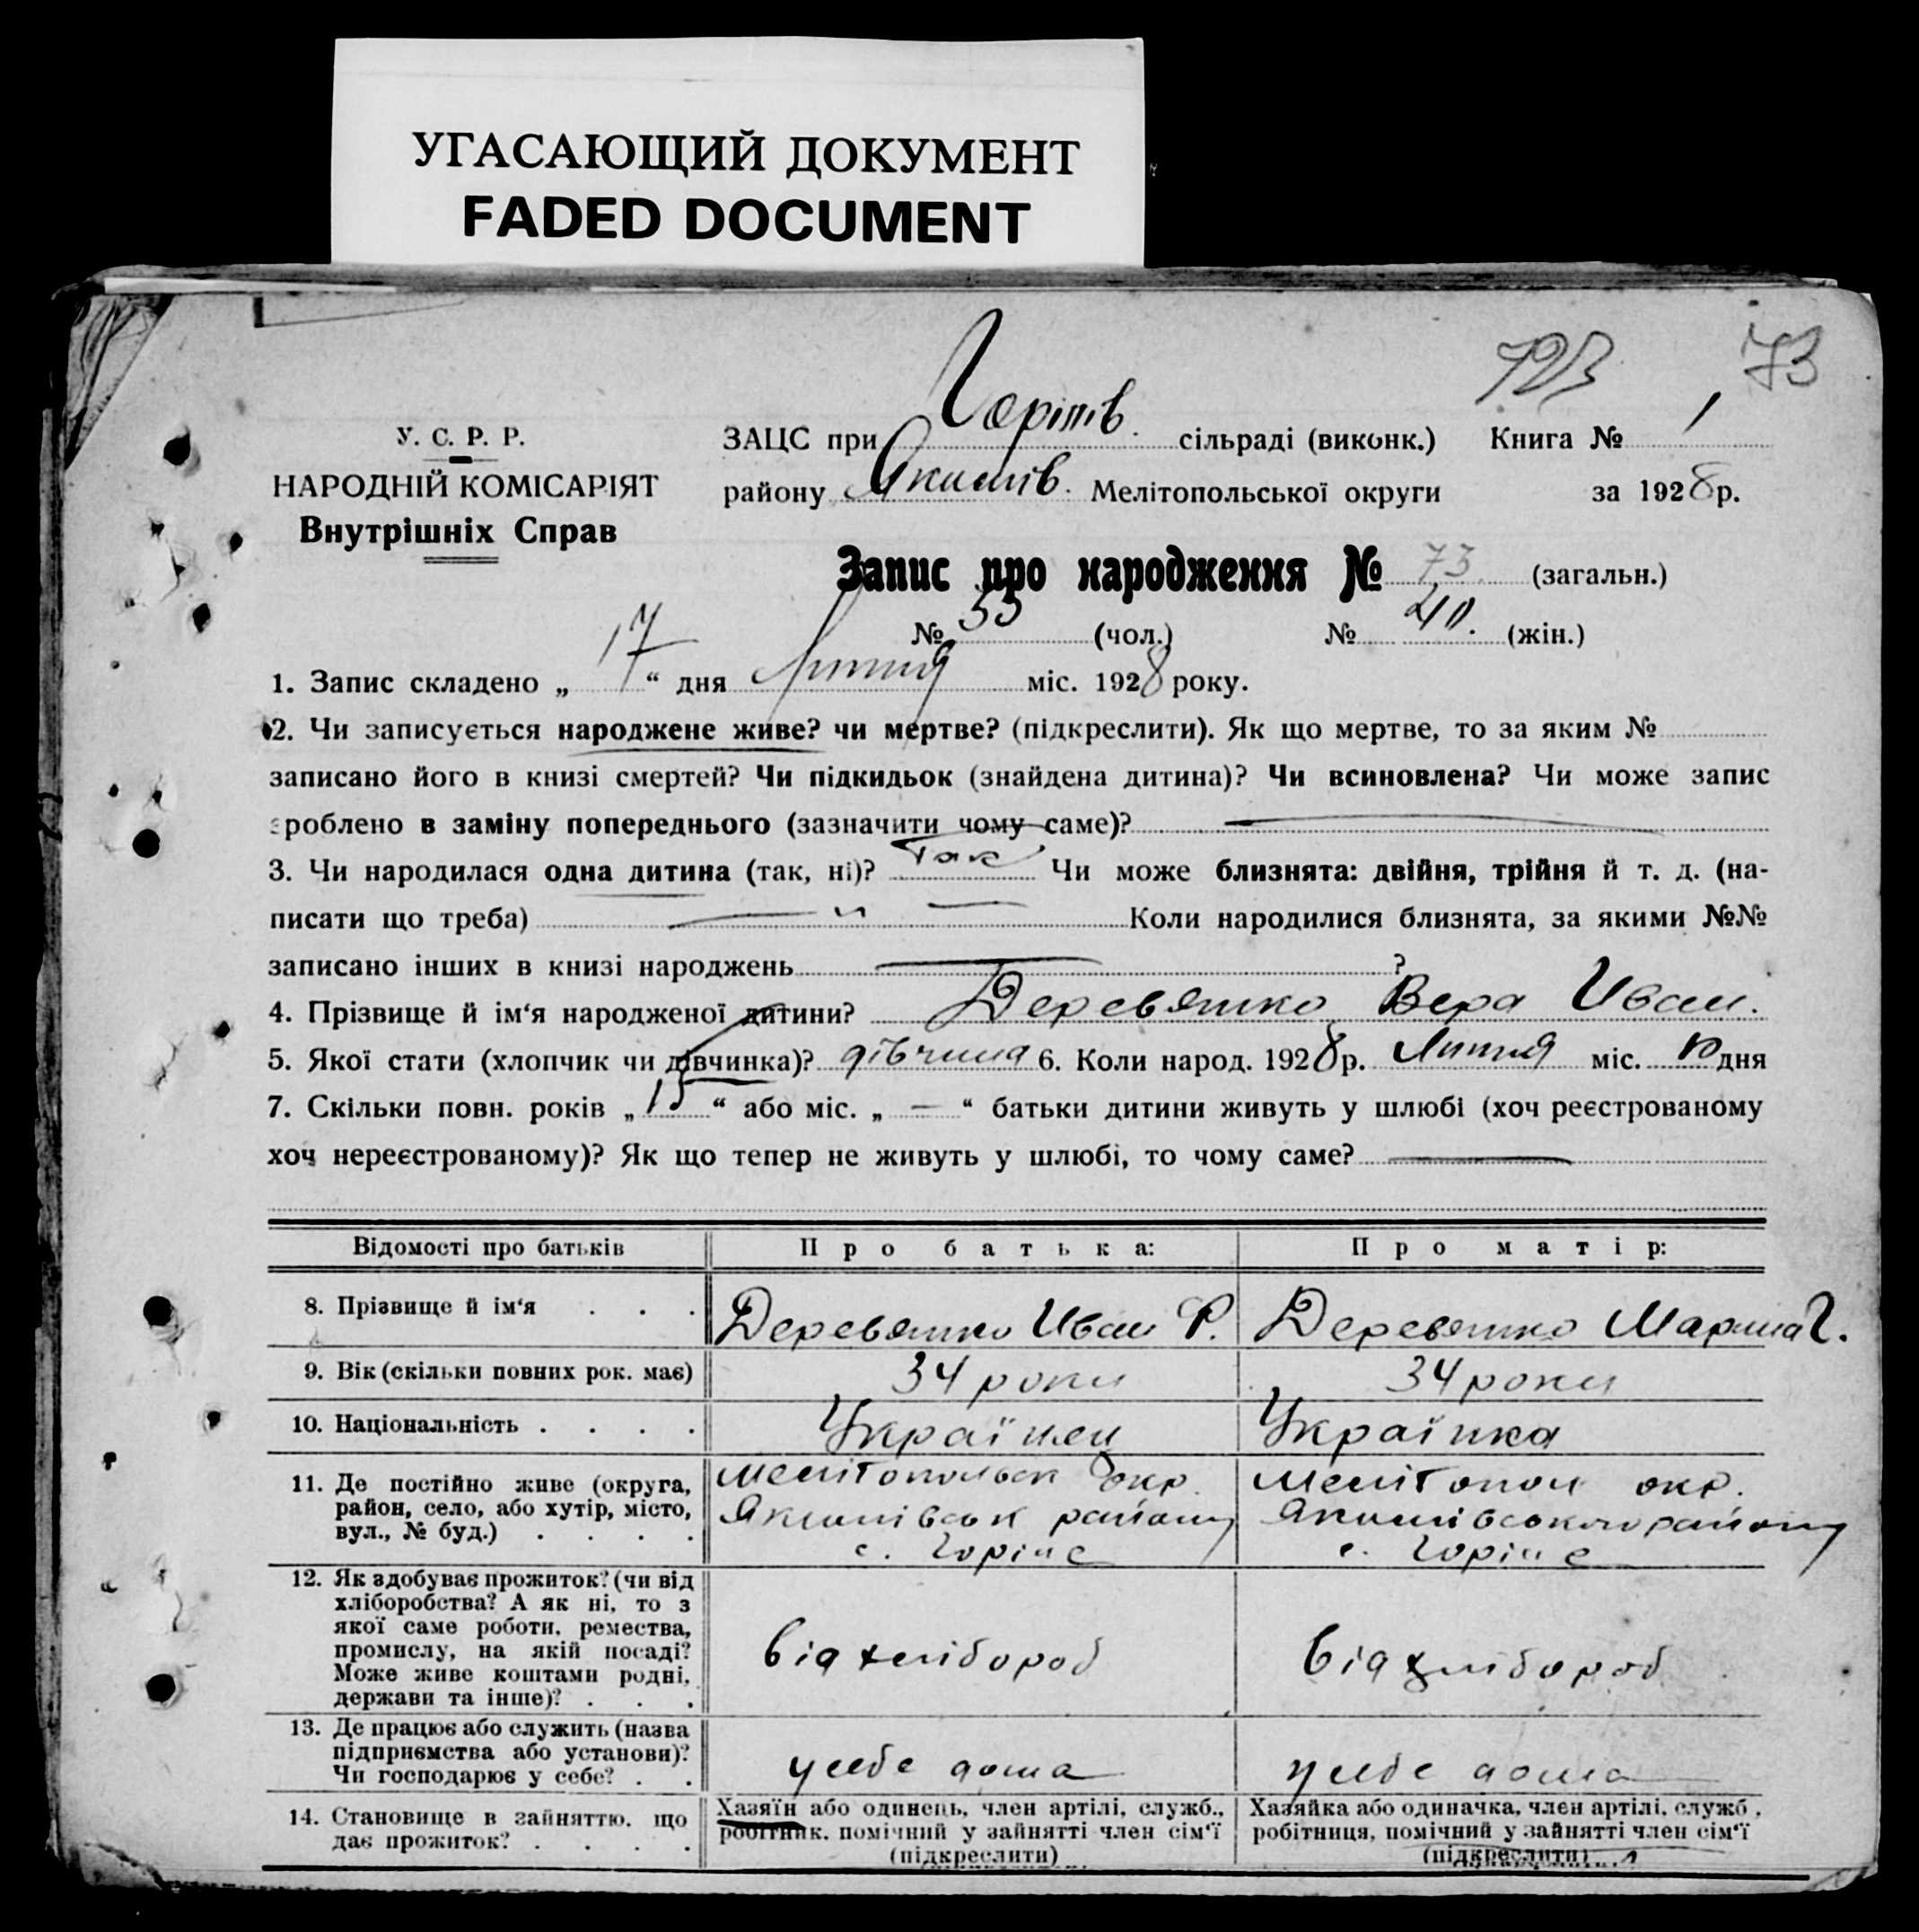 УГАСАЮЩИЙ ДОКУМЕНТ
FADED DOCUMENT
723 73
У. С. Р. Р.
НАРОДНІЙ КОМІСАРІЯТ
Внутрішніх Справ
ЗАЦС при сільраді (виконк.) Книга № 1
району Якимів. Мелітопольської округи за 1928 р.
Запис про народження № 73 (загальн.)
№ 33 (чол.) № 40. (жін.)
1. Запис складено „ 17 “ дня Липня міс. 1928 року.
2. Чи записується народжене живе? чи мертве? (підкреслити). Як що мертве, то за яким №
записано його в книзі смертей? Чи підкидьок (знайдена дитина)? Чи всиновлена? Чи може запис
зроблено в заміну попереднього (зазначити чому саме)?
3. Чи народилася одна дитина (так, ні)? Так Чи може близнята: двійня, трійня й т. д. (на-
писати що треба) Коли народилися близнята, за якими №№
записано інших в книзі народжень ?
4. Прізвище й ім‘я народженої дитини? Деревянко Вера Иван.
5. Якої стати (хлопчик чи дівчинка)? дівчина 6. Коли народ. 1928 р. Липня міс. 10 дня
7. Скільки повн. років „ 15 “ або міс. „ — “ батьки дитини живуть у шлюбі (хоч реєстрованому
хоч нереєстрованому)? Як що тепер не живуть у шлюбі, то чому саме?
Відомості про батьків Про батька: Про матір:
8. Прізвище й ім‘я . . . Деревянко Иван Ф. Деревянко Марина Г.
9. Вік (скільки повних рок. має) 34 роки 34 роки
10. Національність . . . . Українец Українка
11. Де постійно живе (округа, Мелітопольск окр. Мелітопол окр.
район, село, або хутір, місто, Якимівськ району Якимівського району
вул., № буд.) . . . . с. с.
12. Як здобуває прожиток? (чи від
хліборобства? А як ні, то з
якої саме роботи, ремества,
промислу, на якій посаді? від хлібороб від хлібороб
Може живе коштами родні,
держави та інше)? . . .
13. Де працює або служить (назва
підприємства або установи)? у себе дома у себе дома
Чи господарює у себе? . .
14. Становище в зайняттю, що Хазяїн або одинець, член артілі, служб., Хазяйка або одиначка, член артілі, служб.,
дає прожиток? . . . . робітник, помічний у зайнятті член сім‘ї робітниця, помічний у зайнятті член сім‘ї
(підкреслити) (підкреслити)